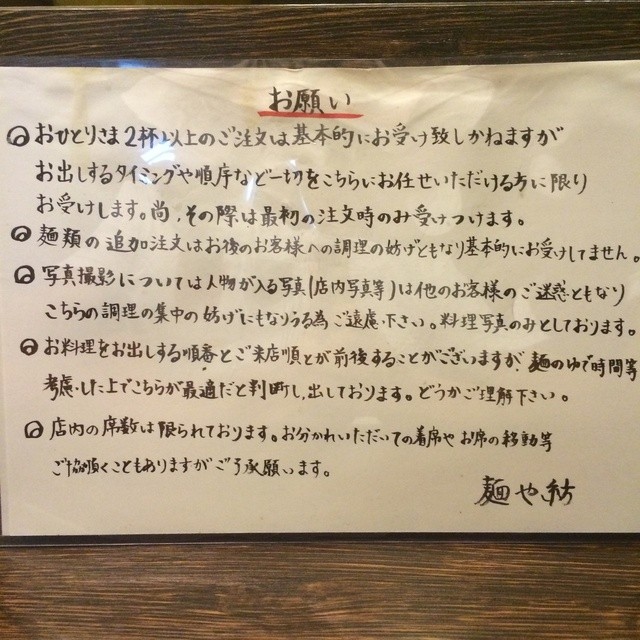 お願い
おひとりさま2杯以上のご注文は基本的にお受け致しかねますが
お出しするタイミングや順序など一切をこちらにお任せいただける方に限り
お受けします。尚、その際は最初の注文時のみ受けつけます。
麺類の追加注文はお後のお客様への調理の妨げともなり基本的にお受けしてません。
写真撮影については人物が入る写真(店内写真等)は他のお客様のご迷惑ともなり
こちらの調理の集中の妨げにもなりうる為ご遠慮下さい。料理写真のみとしております。
お料理をお出しする順番とご来店順とが前後することがございますが、麺のゆで時間等
考慮した上でこちらが最適だと判断し、出しております。どうかご理解下さい。
店内の席数は限られております。お分かれいただいての着席やお席の移動等
ご協力頂くこともありますがご了承願います。
麺や紡